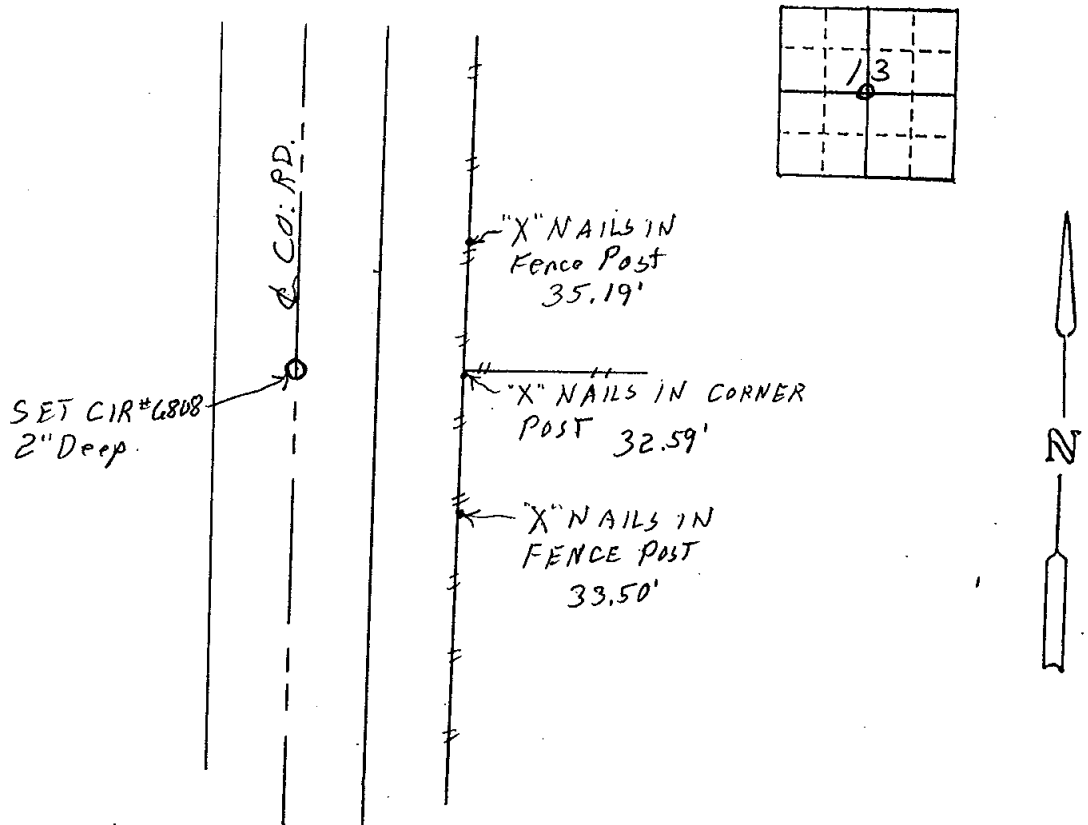 13
℄ CO. RD.
"X" NAILS IN
Fence Post
35.19'
SET CIR#6808
2" Deep.
"X" NAILS IN CORNER
POST 32.59'
"X" NAILS IN
FENCE POST
33.50'
N